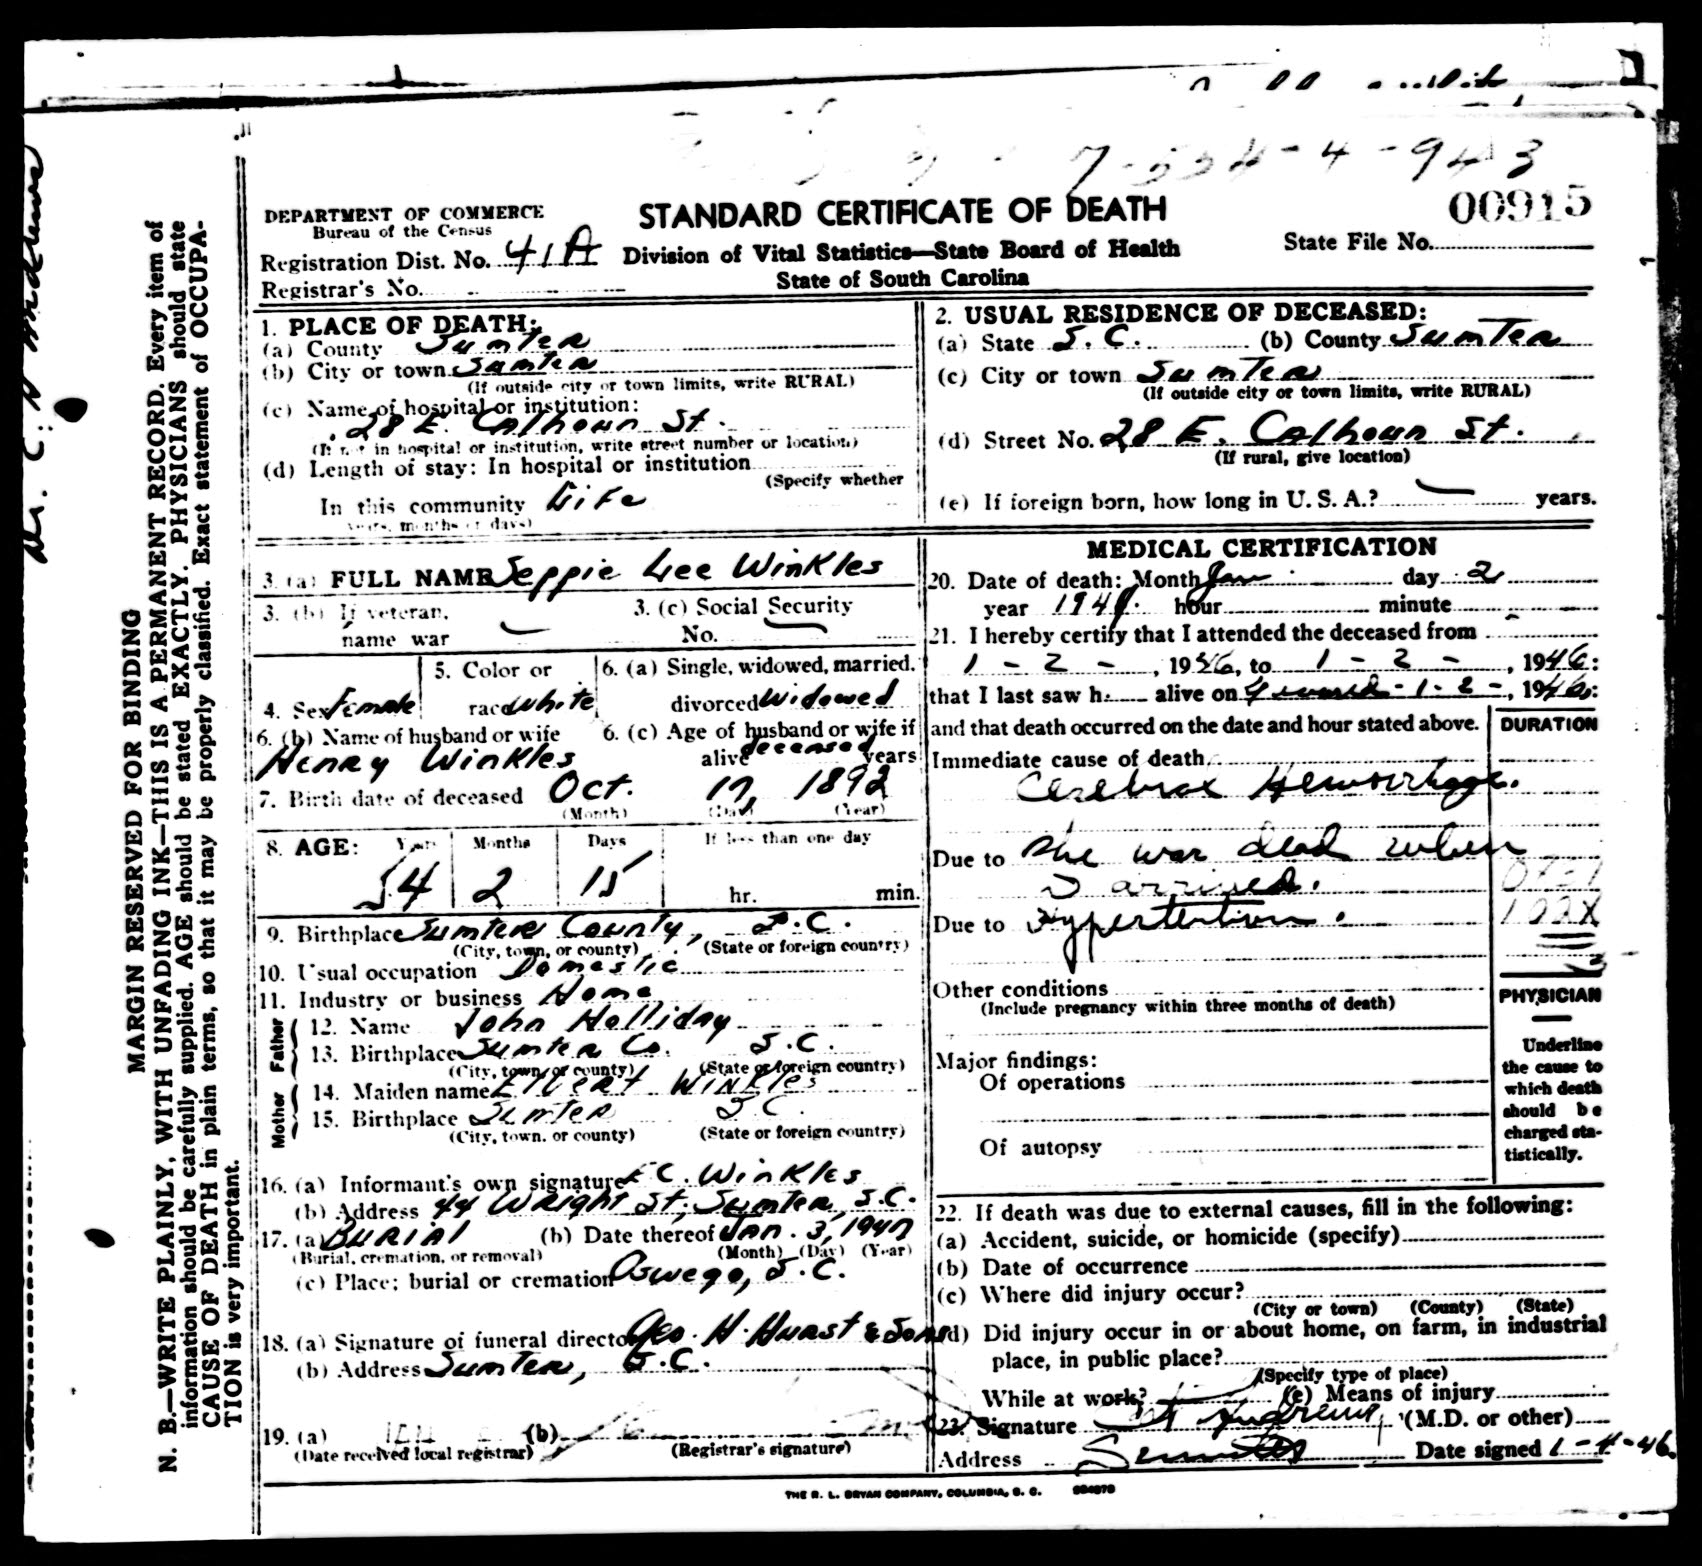 7-554-4-943
00915
DEPARTMENT OF COMMERCE
Bureau of the Census
STANDARD CERTIFICATE OF DEATH
Registration Dist. No. 41A
Division of Vital Statistics—State Board of Health
State File No.
Registrar's No.
State of South Carolina
1. PLACE OF DEATH:
(a) County Sumter
(b) City or town Sumter
(If outside city or town limits, write RURAL)
(c) Name of hospital or institution:
28 E. Calhoun St.
(If not in hospital or institution, write street number or location)
(d) Length of stay: In hospital or institution
(Specify whether
In this community Life
years, months or days)
2. USUAL RESIDENCE OF DECEASED:
(a) State S.C. (b) County Sumter
(c) City or town Sumter
(If outside city or town limits, write RURAL)
(d) Street No. 28 E. Calhoun St.
(If rural, give location)
(e) If foreign born, how long in U. S. A.? — years.
3. (a) FULL NAME Seppie Lee Winkles
3. (b) If veteran, 3. (c) Social Security
name war — No. —
4. Sex Female
5. Color or
race White
6. (a) Single, widowed, married,
divorced Widowed
6. (b) Name of husband or wife
Henry Winkles
6. (c) Age of husband or wife if
alive deceased years
7. Birth date of deceased Oct. 17, 1892
(Month) (Day) (Year)
8. AGE: Years Months Days If less than one day
54 2 15 hr. min.
9. Birthplace Sumter County, S.C.
(City, town, or county) (State or foreign country)
10. Usual occupation Domestic
11. Industry or business Home
Father
12. Name John Holliday
13. Birthplace Sumter Co. S.C.
(City, town or county) (State or foreign country)
Mother
14. Maiden name Elbert Winkles
15. Birthplace Sumter S.C.
(City, town. or county) (State or foreign country)
16. (a) Informant's own signature E C. Winkles
(b) Address 44 Wright St., Sumter, S.C.
17. (a) Burial (b) Date thereof Jan. 3, 1947
(Burial, cremation, or removal) (Month) (Day) (Year)
(c) Place; burial or cremation Oswego, S.C.
18. (a) Signature of funeral director Geo. H. Hurst & Sons
(b) Address Sumter, S.C.
19. (a) (b)
(Date received local registrar) (Registrar's signature)
MEDICAL CERTIFICATION
20. Date of death: Month Jan day 2
year hour minute
21. I hereby certify that I attended the deceased from
1 - 2 - , 1946, to 1 - 2 - , 1946:
that I last saw h alive on - 1 - 2 - , 1946:
and that death occurred on the date and hour stated above.
DURATION
Immediate cause of death
Cerebral Hemorrhage.
Due to She was dead when
I arrived.
Due to Hypertention.
Other conditions
(Include pregnancy within three months of death)
Major findings:
Of operations
Of autopsy
PHYSICIAN
Underline
the cause to
which death
should be
charged sta-
tistically.
22. If death was due to external causes, fill in the following:
(a) Accident, suicide, or homicide (specify)
(b) Date of occurrence
(c) Where did injury occur?
(City or town) (County) (State)
(d) Did injury occur in or about home, on farm, in industrial
place, in public place?
(Specify type of place)
While at work? (e) Means of injury
23. Signature Andrews, (M.D. or other)
Address Sumter Date signed 1-4-46.
THE R. L. BRYAN COMPANY, COLUMBIA, S. C.
MARGIN RESERVED FOR BINDING
N. B.—WRITE PLAINLY, WITH UNFADING INK—THIS IS A PERMANENT RECORD. Every item of
information should be carefully supplied. AGE should be stated EXACTLY. PHYSICIANS should state
CAUSE OF DEATH in plain terms, so that it may be properly classified. Exact statement of OCCUPA-
TION is very important.
Dr. C. H Andrews